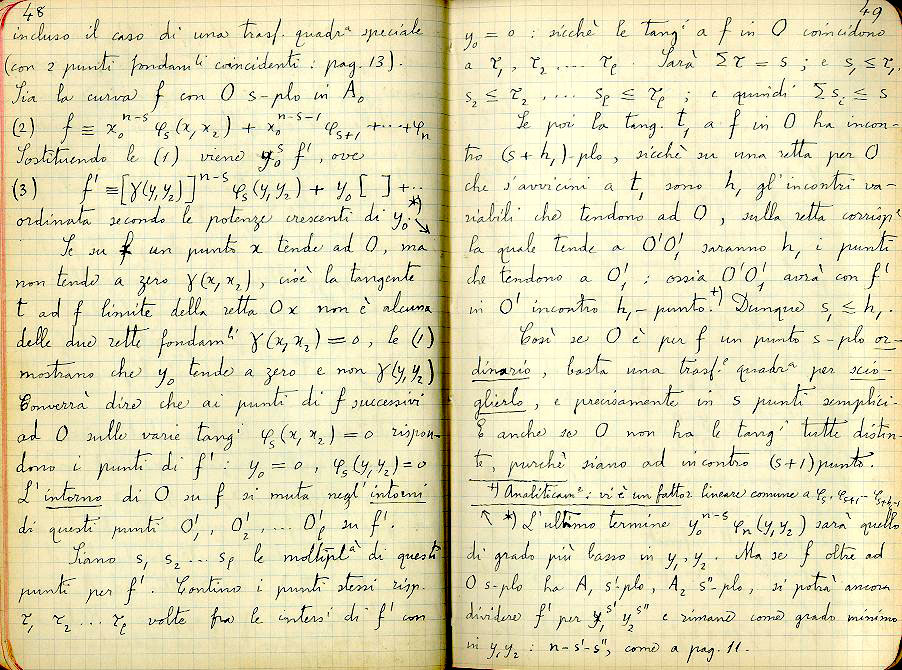 48
incluso il caso di una trasf. quadr.ª speciale
(con 2 punti fondam.li coincidenti: pag. 13).
Sia la curva f con O s-plo in A₀
(2) f ≡ x₀ⁿ⁻ˢ φₛ(x₁x₂) + x₀ⁿ⁻ˢ⁻¹ φₛ₊₁ + ... + φₙ
Sostituendo le (1) viene y₀ˢ f', ove
(3) f' ≡ [γ(y₁y₂)]ⁿ⁻ˢ φₛ(y₁y₂) + y₀ [ ] + ...
ordinata secondo le potenze crescenti di y₀. *) ↘
Se su f un punto x tende ad O, ma
non tende a zero γ(x₁x₂), cioè la tangente
t ad f limite della retta Ox non è alcuna
delle due rette fondam.li γ(x₁x₂) = 0, le (1)
mostrano che y₀ tende a zero e non γ(y₁y₂)
Converrà dire che ai punti di f successivi
ad O sulle varie tang.i φₛ(x₁x₂) = 0 rispon-
dono i punti di f': y₀ = 0, φₛ(y₁y₂) = 0
L'intorno di O su f si muta negl'intorni
di questi punti O'₁, O'₂, ... O'ρ su f'.
Siano s₁ s₂ ... sρ le moltipl.tà di questi
punti per f'. Contino i punti stessi risp.
τ₁ τ₂ ... τρ volte fra le inters.i di f' con
49
y₀ = 0: sicchè le tang.i a f in O coincidono
a τ₁, τ₂ ... τρ. Sarà Στ = s; e s₁ ≤ τ₁,
s₂ ≤ τ₂, ... sρ ≤ τρ; e quindi Σsᵢ ≤ s
Se poi la tang. t₁ a f in O ha incon-
tro (s+h₁)-plo, sicchè su una retta per O
che s'avvicini a t₁ sono h₁ gl'incontri va-
riabili che tendono ad O, sulla retta corrisp.te
la quale tende a O'O'₁ saranno h₁ i punti
che tendono a O'₁: ossia O'O'₁ avrà con f'
in O' incontro h₁-punto. +) Dunque s₁ ≤ h₁.
Così se O è per f un punto s-plo or-
dinario, basta una trasf.e quadr.ª per scio-
glierlo, e precisamente in s punti semplici.
E anche se O non ha le tang.i tutte distin-
te, purchè siano ad incontro (s+1)punto.
+) Analiticam.e: vi è un fattor lineare comune a φₛ, φₛ₊₁ ... φₛ₊ₕ₋₁
↖ *) L'ultimo termine y₀ⁿ⁻ˢ φₙ(y₁y₂) sarà quello
di grado più basso in y₁y₂. Ma se f oltre ad
O s-plo ha A₁ s'-plo, A₂ s''-plo, si potrà ancora
dividere f' per y₁ˢ' y₂ˢ'' e rimane come grado minimo
in y₁y₂: n-s'-s'', come a pag. 11.